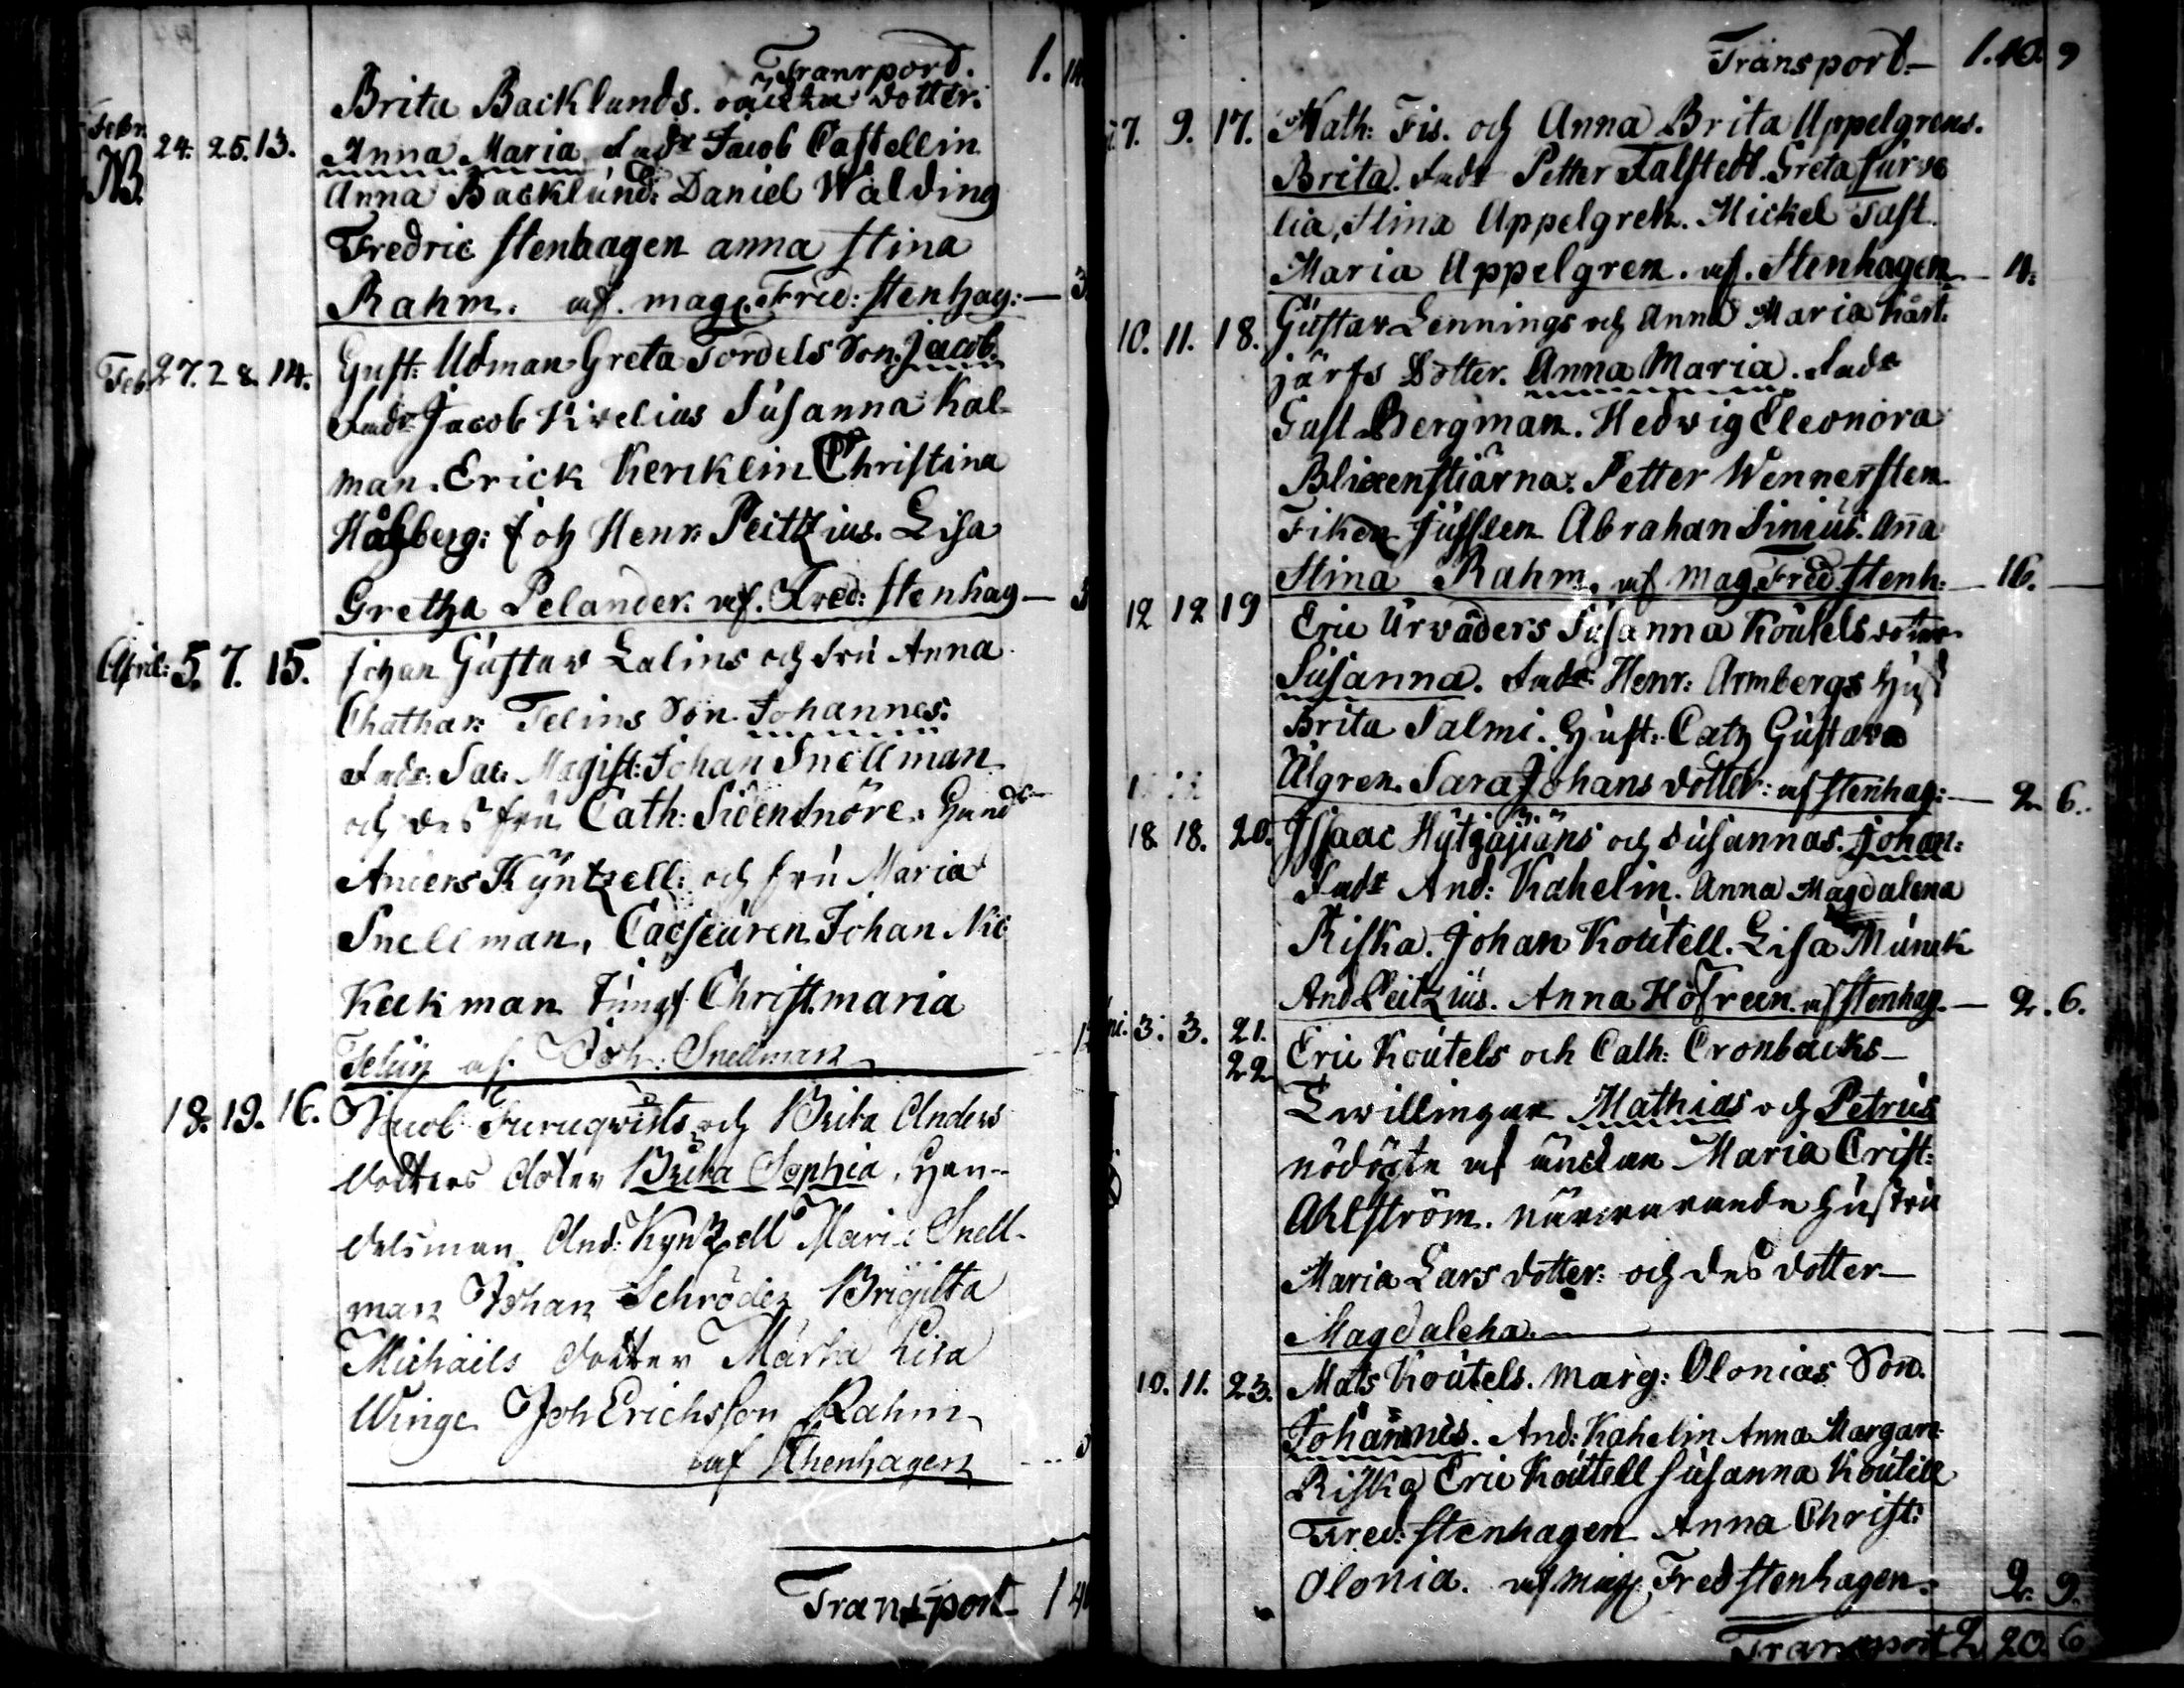 Transport. 1.
Brita Backlunds. oäckta dotter.
Febr. 24. 25. 13. Anna Maria. Fadr Jacob Castellin
NB. Anna Backlund: Daniel Walding
Fredric Stenhagen anna Stina
Rahm. af. mag. Fred: Stenhag: — 3
Feb 27. 28. 14. Gust: Udman Greta Tordels Son. Jacob.
Fadr Jacob Kivelius Susanna Kal-
man. Erick Kercklein Christina
Håhberg: Joh Henr: Peitzius. Lisa
Gretha Pelander. af. Fred: Stenhag — 3
April: 5. 7. 15. Johan Gustav Lalins och fru Anna
Chathar: Telins Son. Johannes.
Fadr: Sac: Magist: Johan Snellman
och des fru Cath: Sidensnöre. Handl
Anders Kyntzell: och fru Maria
Snellman, Cacseuren Johan Nic
Keckman Jungf Christ. maria
Telin af. Joh: Snellman
18. 19. 16. Jacob Furuqvists och Brita Anders
dotters doter Brita Sophia. Han-
delsman And: Kyntzell Maria Snell-
man Johan Schröder Brigitta
Michaels dotter Martha Lisa
Winge Joh Erichsson Rahm
af Sthenhagen
Transport 1
Transport — 1. 10. 9
7. 9. 17. Math: Fis. och Anna Brita Appelgrens.
Brita. Fadr Petter Falstedt. Greta Surve
lia, Stina Appelgren. Mickel Fast.
Maria Appelgren. af. Stenhagen — 4.
10. 11. 18. Gustav Lennings och Anna Maria Kart:
järfs Dotter. Anna Maria. Fadr
Gust Bergman. Hedvig Eleonora
Blixenstiärna. Petter Wennersten
Fiken Jusslen Abrahan Simius. Anna
Stina Rahm, af mag. Fred Stenh: — 16. —
12 12 19 Eric Urväders Susanna Koutels doter
Susanna. Fadr. Henr: Armbergs Hust
Brita Salmi. Hust: Cath Gustava
Ulgren. Sara Johans dotter: af Stenhag: — 2. 6.
18. 18. 20. Issaac Hytjäjäns och Susannas. Johan:
Fadr And: Kahelin. Anna Magdalena
Riska. Johan Koutell. Lisa Munck
And Peitzius. Anna Hofreen. af Stenhag. — 2. 6.
ni. 3. 3. 21. Eric Koutels och Cath: Cronbacks —
22 Twillingar Mathias och Petrus
nödögte af änckan Maria Crist:
Ahlström. närvarande Hustru
Maria Lars dotter: och des dotter —
Magdalena. —
10. 11. 23. Mats Koutels. Marg: Olonias Son.
Johannes. And: Kahelin Anna Margar:
Riska Eric Koutell Susanna Koutell
Fred: Stenhagen Anna Christ:
Olonia. af mag Fred Stenhagen. 2. 9.
Transport 2. 20. 6